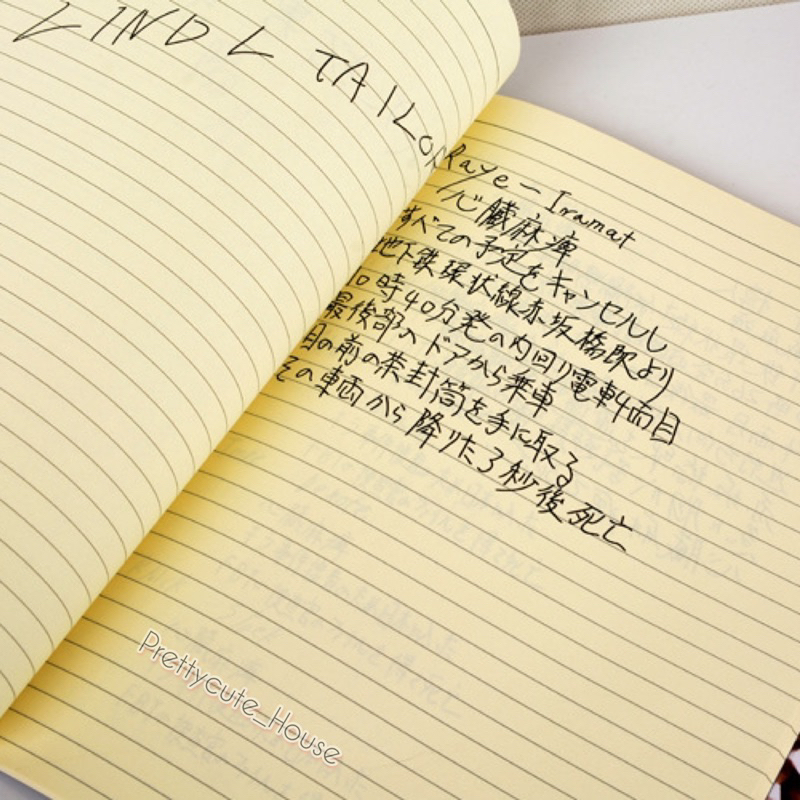 LIND L TAILOR
Raye - Iramat
心臓麻痺
すべての予定をキャンセルし
地下鉄環状線赤坂橋駅より
10時40分発の内回り電車4両目
最後部のドアから乗車
目の前の茶封筒を手に取る
その車両から降りた3秒後死亡
Prettycute_House